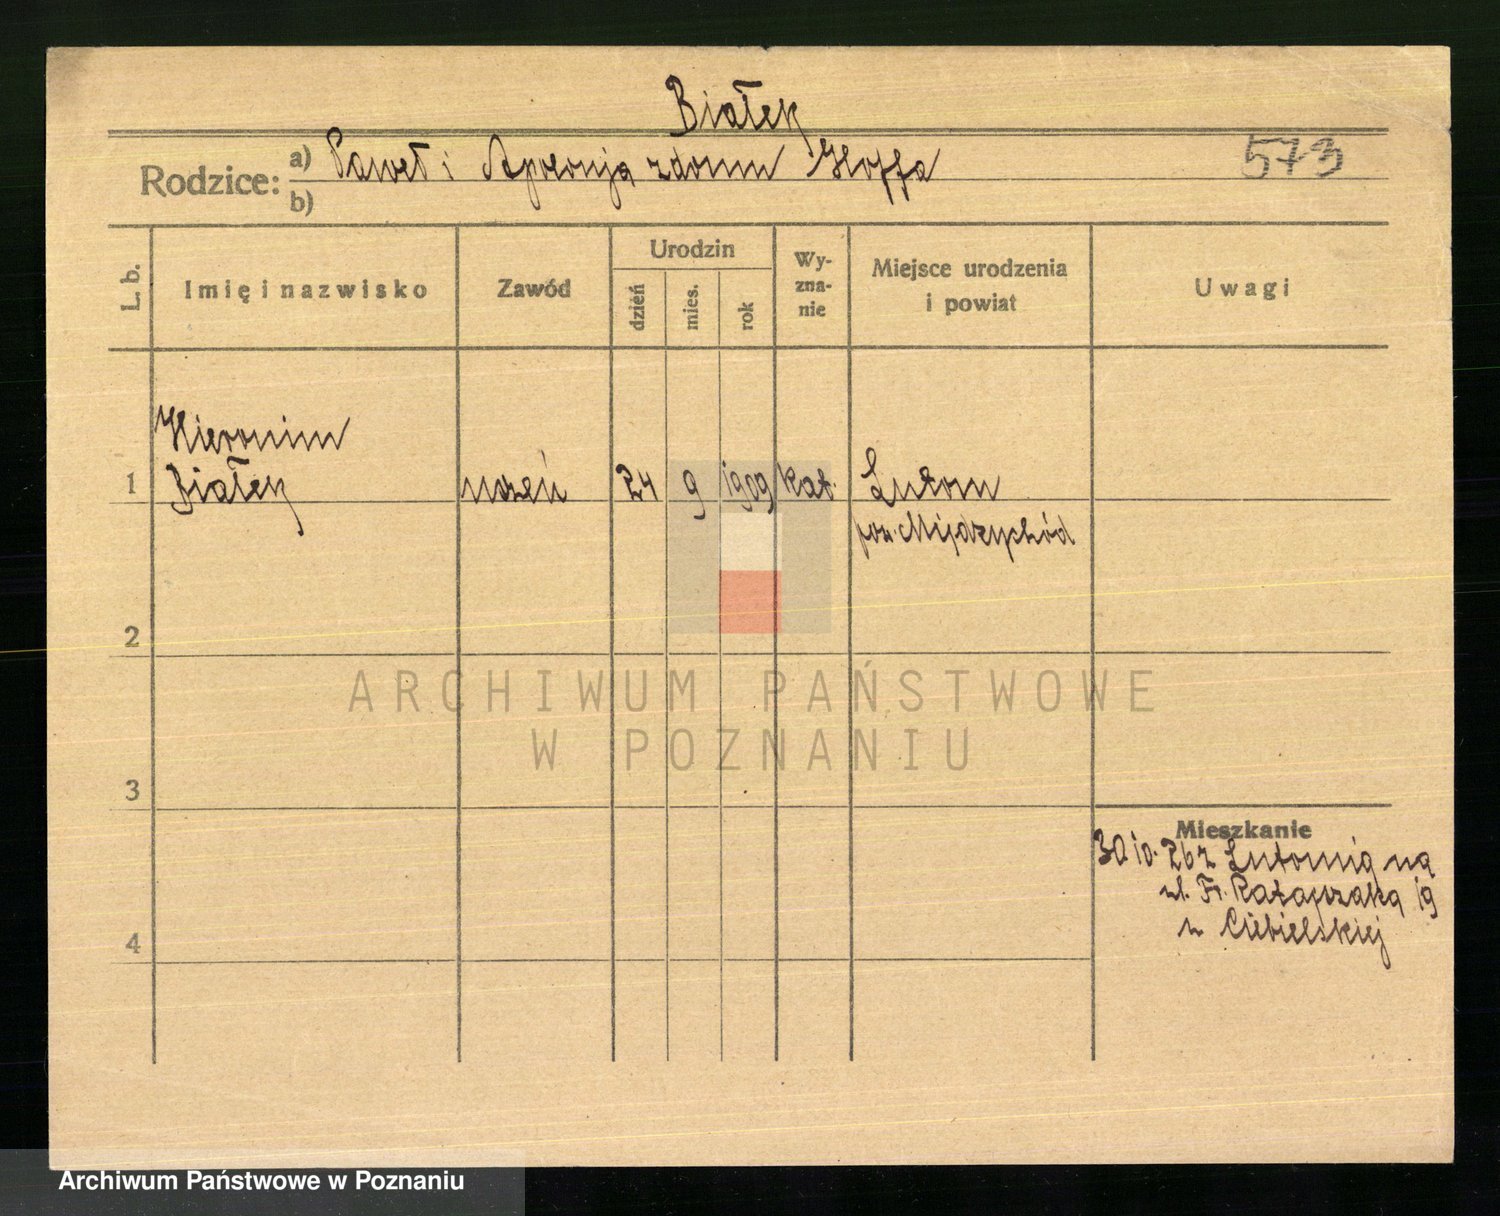 Białek
Rodzice: a) Paweł i Apolonja z domu Hoffa
573
b)
L. b.
Imię i nazwisko
Zawód
Urodzin
dzień
mies.
rok
Wy-
zna-
nie
Miejsce urodzenia
i powiat
Uwagi
Hieronim
1 Białek uczeń 24 9 1909 kat. Lutom
pow. Międzychód
2
ARCHIWUM PAŃSTWOWE
W POZNANIU
3
Mieszkanie
30 10 26 z Lutomia na
ul. Fr. Ratajczaka 19
u Ciebielskiej
4
Archiwum Państwowe w Poznaniu